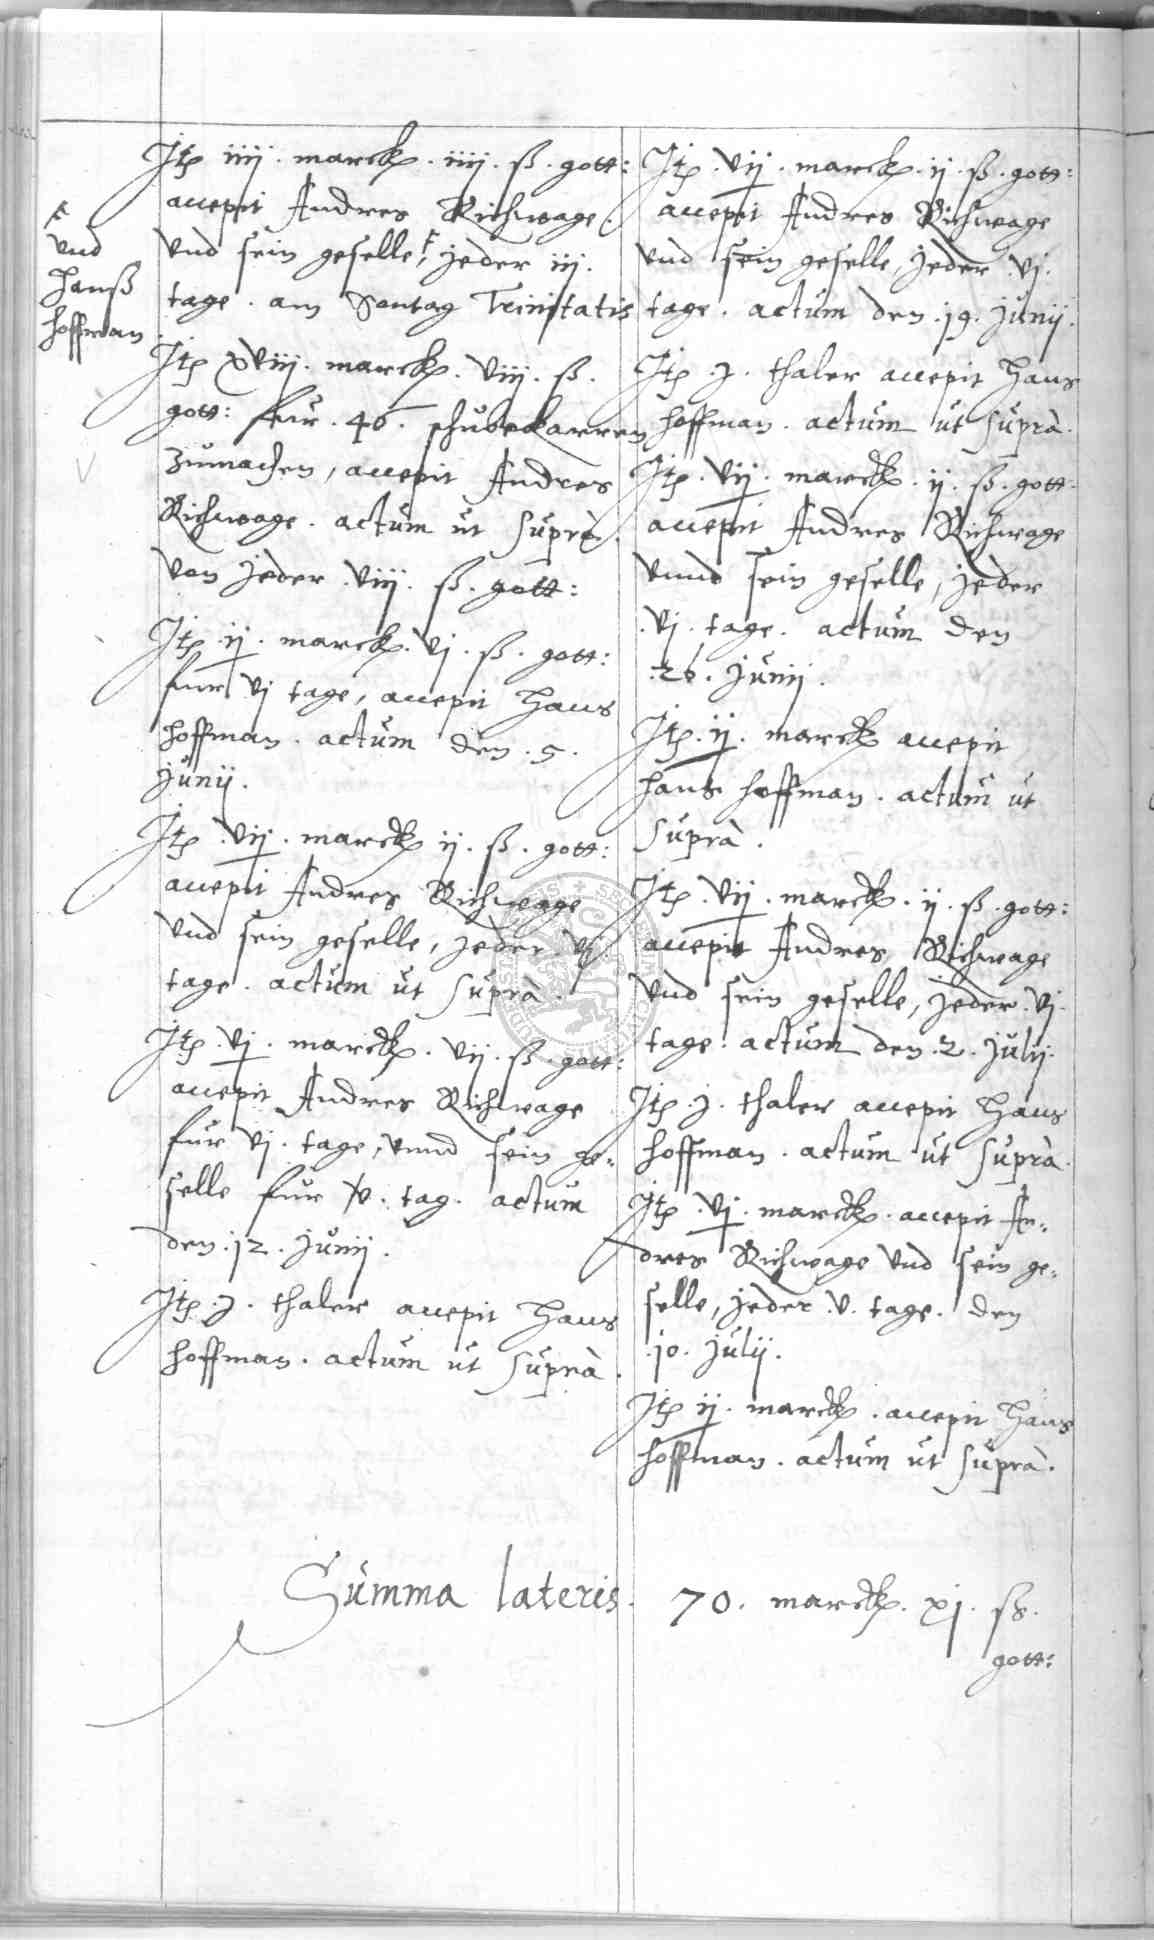 Jtem iiij . marck . iiij . ß . gott:
accepit Andres Richwage .
vnd sein geselle, F jeder iij .
tage . am Sontag Trinitatis
F
vnd
Hanß
hoffman
Jtem xviij . marck . viij . ß .
gott: fur . 46 . schubekarren
zumachen, accepit Andres
Richwage . actum ut suprà .
von jeder . viij . ß . gott:
Jtem ij . marck . vj . ß . gott:
fur vj tage, accepit Hans
hoffman . actum den . 5 .
junij .
Jtem . vij . marck ij . ß . gott:
accepit Andres Richwage
vnd sein geselle, jeder . vj .
tage . actum ut suprà .
Jtem . vj . marck . vij . ß . gott:
accepit Andres Richwage
fur vj . tage, vnnd sein ge=
selle fur v . tag . actum
den . 12 . junij .
Jtem . j . thaler accepit Hans
hoffman . actum ut suprà .
Jtem . vij . marck . ij . ß . gott:
accepit Andres Richwage
vnd sein geselle, jeder . vj .
tage . actum den . 19 . junij .
Jtem . j . thaler accepit Hans
hoffman . actum ut suprà .
Jtem . vij . marck . ij . ß . gott:
accepit Andres Richwage
vnnd sein geselle, jeder
. vj . tage . actum den
. 26 . junij .
Jtem . ij . marck accepit
Hans hoffman . actum ut
suprà .
Jtem . vij . marck . ij . ß . gott:
accepit Andres Richwage
vnd sein geselle, jeder . vj .
tage . actum den . 2 . julij .
Jtem . j . thaler accepit Hans
hoffman . actum ut suprà .
Jtem . vj . marck . accepit An=
dres Richwage vnd sein ge=
selle, jeder . v . tage . den
. 10 . julij .
Jtem ij . marck . accepit Hans
hoffman . actum ut suprà .
Summa lateris . 70 . marck . xj . ß .
gott: